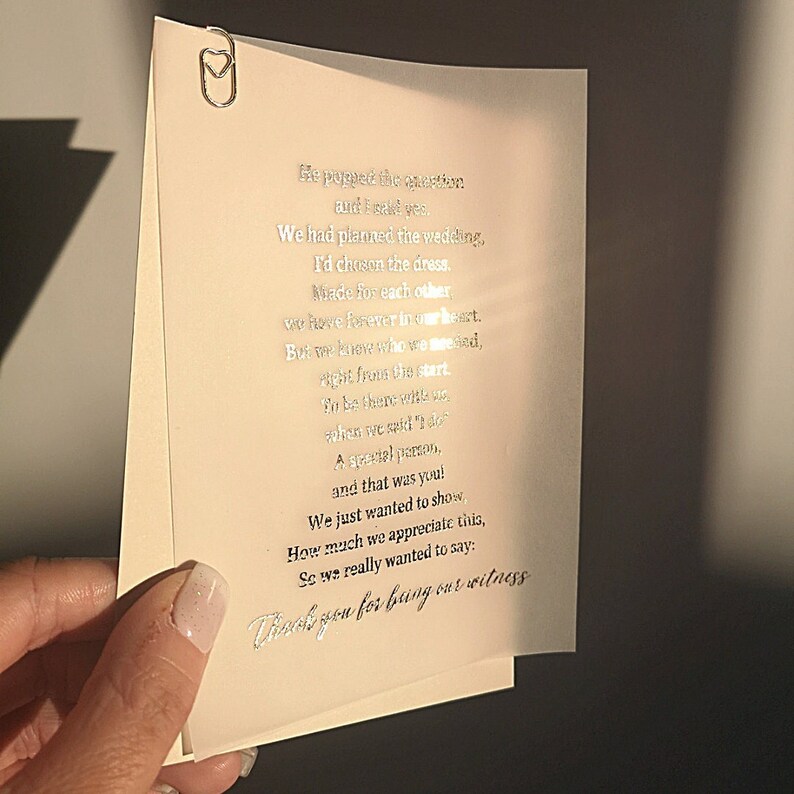 He popped the question
and I said yes.
We had planned the wedding,
I'd chosen the dress.
Made for each other,
we have forever in our heart.
But we knew who we needed,
right from the start.
To be there with us,
when we said "I do"
A special person,
and that was you!
We just wanted to show,
How much we appreciate this,
So we really wanted to say:
Thank you for being our witness